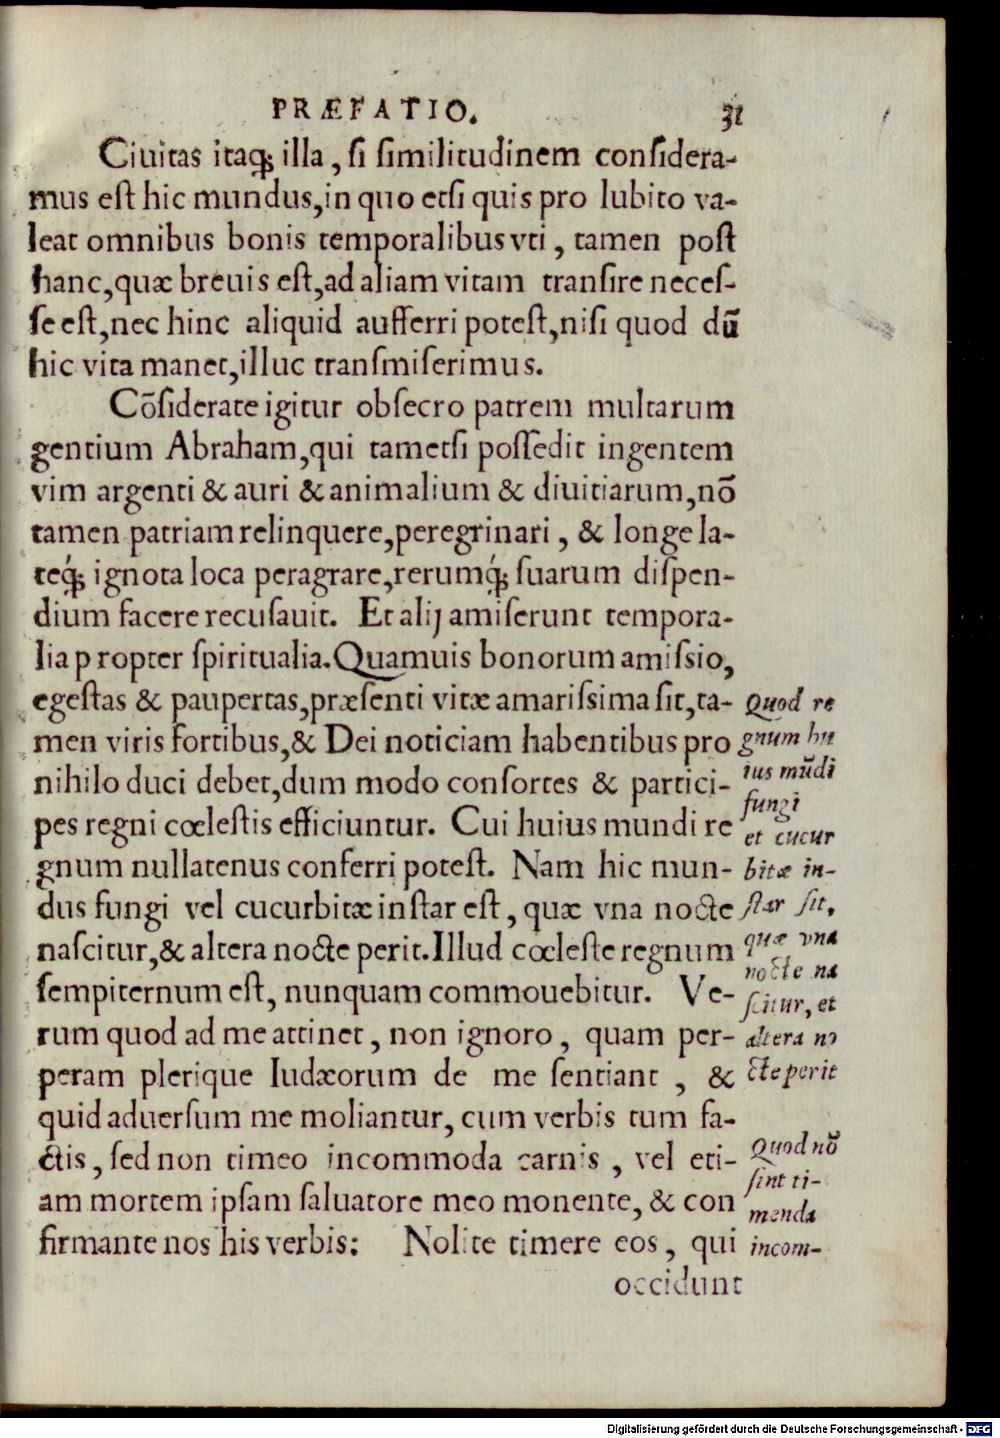 PRÆFATIO. 31
Ciuitas itaq; illa, ſi ſimilitudinem conſidera-
mus eſt hic mundus, in quo etſi quis pro lubito va-
leat omnibus bonis temporalibus vti, tamen poſt
hanc, quæ breuis eſt, ad aliam vitam tranſire neceſ-
ſe eſt, nec hinc aliquid aufferri poteſt, niſi quod dū
hic vita manet, illuc tranſmiſerimus.
Cōſiderate igitur obſecro patrem multarum
gentium Abraham, qui tametſi poſſedit ingentem
vim argenti & auri & animalium & diuitiarum, nō
tamen patriam relinquere, peregrinari, & longe la-
teq́; ignota loca peragrare, rerumq́; ſuarum diſpen-
dium facere recuſauit. Et alij amiſerunt tempora-
lia p ropter ſpiritualia. Quamuis bonorum amiſsio,
egeſtas & paupertas, præſenti vitæ amariſsima ſit, ta-
men viris fortibus, & Dei noticiam habentibus pro
nihilo duci debet, dum modo conſortes & partici-
pes regni cœleſtis efficiuntur. Cui huius mundi re
gnum nullatenus conferri poteſt. Nam hic mun-
dus fungi vel cucurbitæ inſtar eſt, quæ vna nocte
naſcitur, & altera nocte perit. Illud cœleſte regnum
ſempiternum eſt, nunquam commouebitur. Ve-
rum quod ad me attinet, non ignoro, quam per-
peram plerique Iudæorum de me ſentiant, &
quid aduerſum me moliantur, cum verbis tum fa-
ctis, ſed non timeo incommoda carnis, vel eti-
am mortem ipſam ſaluatore meo monente, & con
firmante nos his verbis: Nolite timere eos, qui
occidunt
Quod re
gnum hu
ius mūdi
fungi
et cucur
bitæ in-
ſtar ſit,
quæ vna
nocte na
ſcitur, et
altera no
cte perit
Quod nō
ſint ti-
menda
incom-
Digitalisierung gefördert durch die Deutsche Forschungsgemeinschaft - DFG